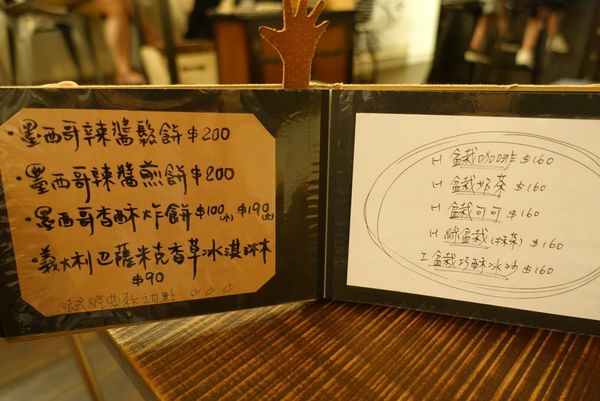 ·墨西哥辣醬鬆餅$200
·墨西哥辣醬煎餅$200
·墨西哥香酥炸餅$100(小) $190(大)
·義大利巴薩米克香草冰淇淋
$90
H 盆栽咖啡 $160
H 盆栽奶茶 $160
H 盆栽可可 $160
H 綠盆栽(抹茶) $160
I 盆栽巧酥冰沙 $160